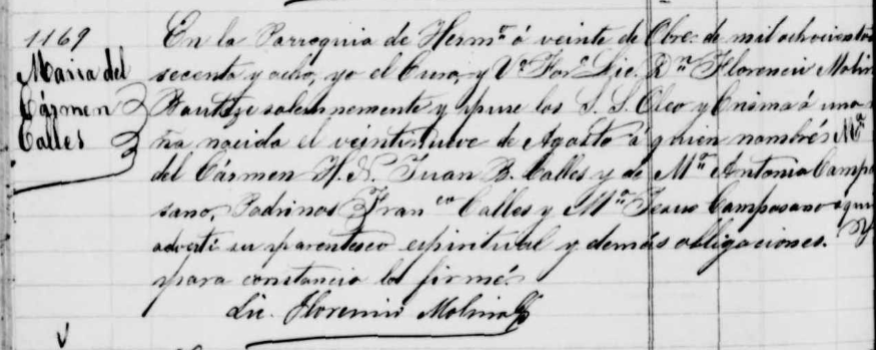 1169
Maria del
Cármen
Calles
En la Parroquia de Hermº á veinte de Obre. de mil ochocientos
secenta y ocho, yo el Cura, y Vº Forº Lic. Dn Florencio Molina
Bautize solemnemente y puse los S. S. Oleo y Crisma á una ni
ña nacida el veintinueve de Agosto á quien nombré Mª
del Cármen H. N. Juan B. Calles y de Mª Antonia Campo
sano, Padrinos Franco Calles y Mª Jesus Camposano á quien
adverti su parentesco espiritual y demás obligaciones. Y
para constancia lo firmé.
Lic. Florencio Molina